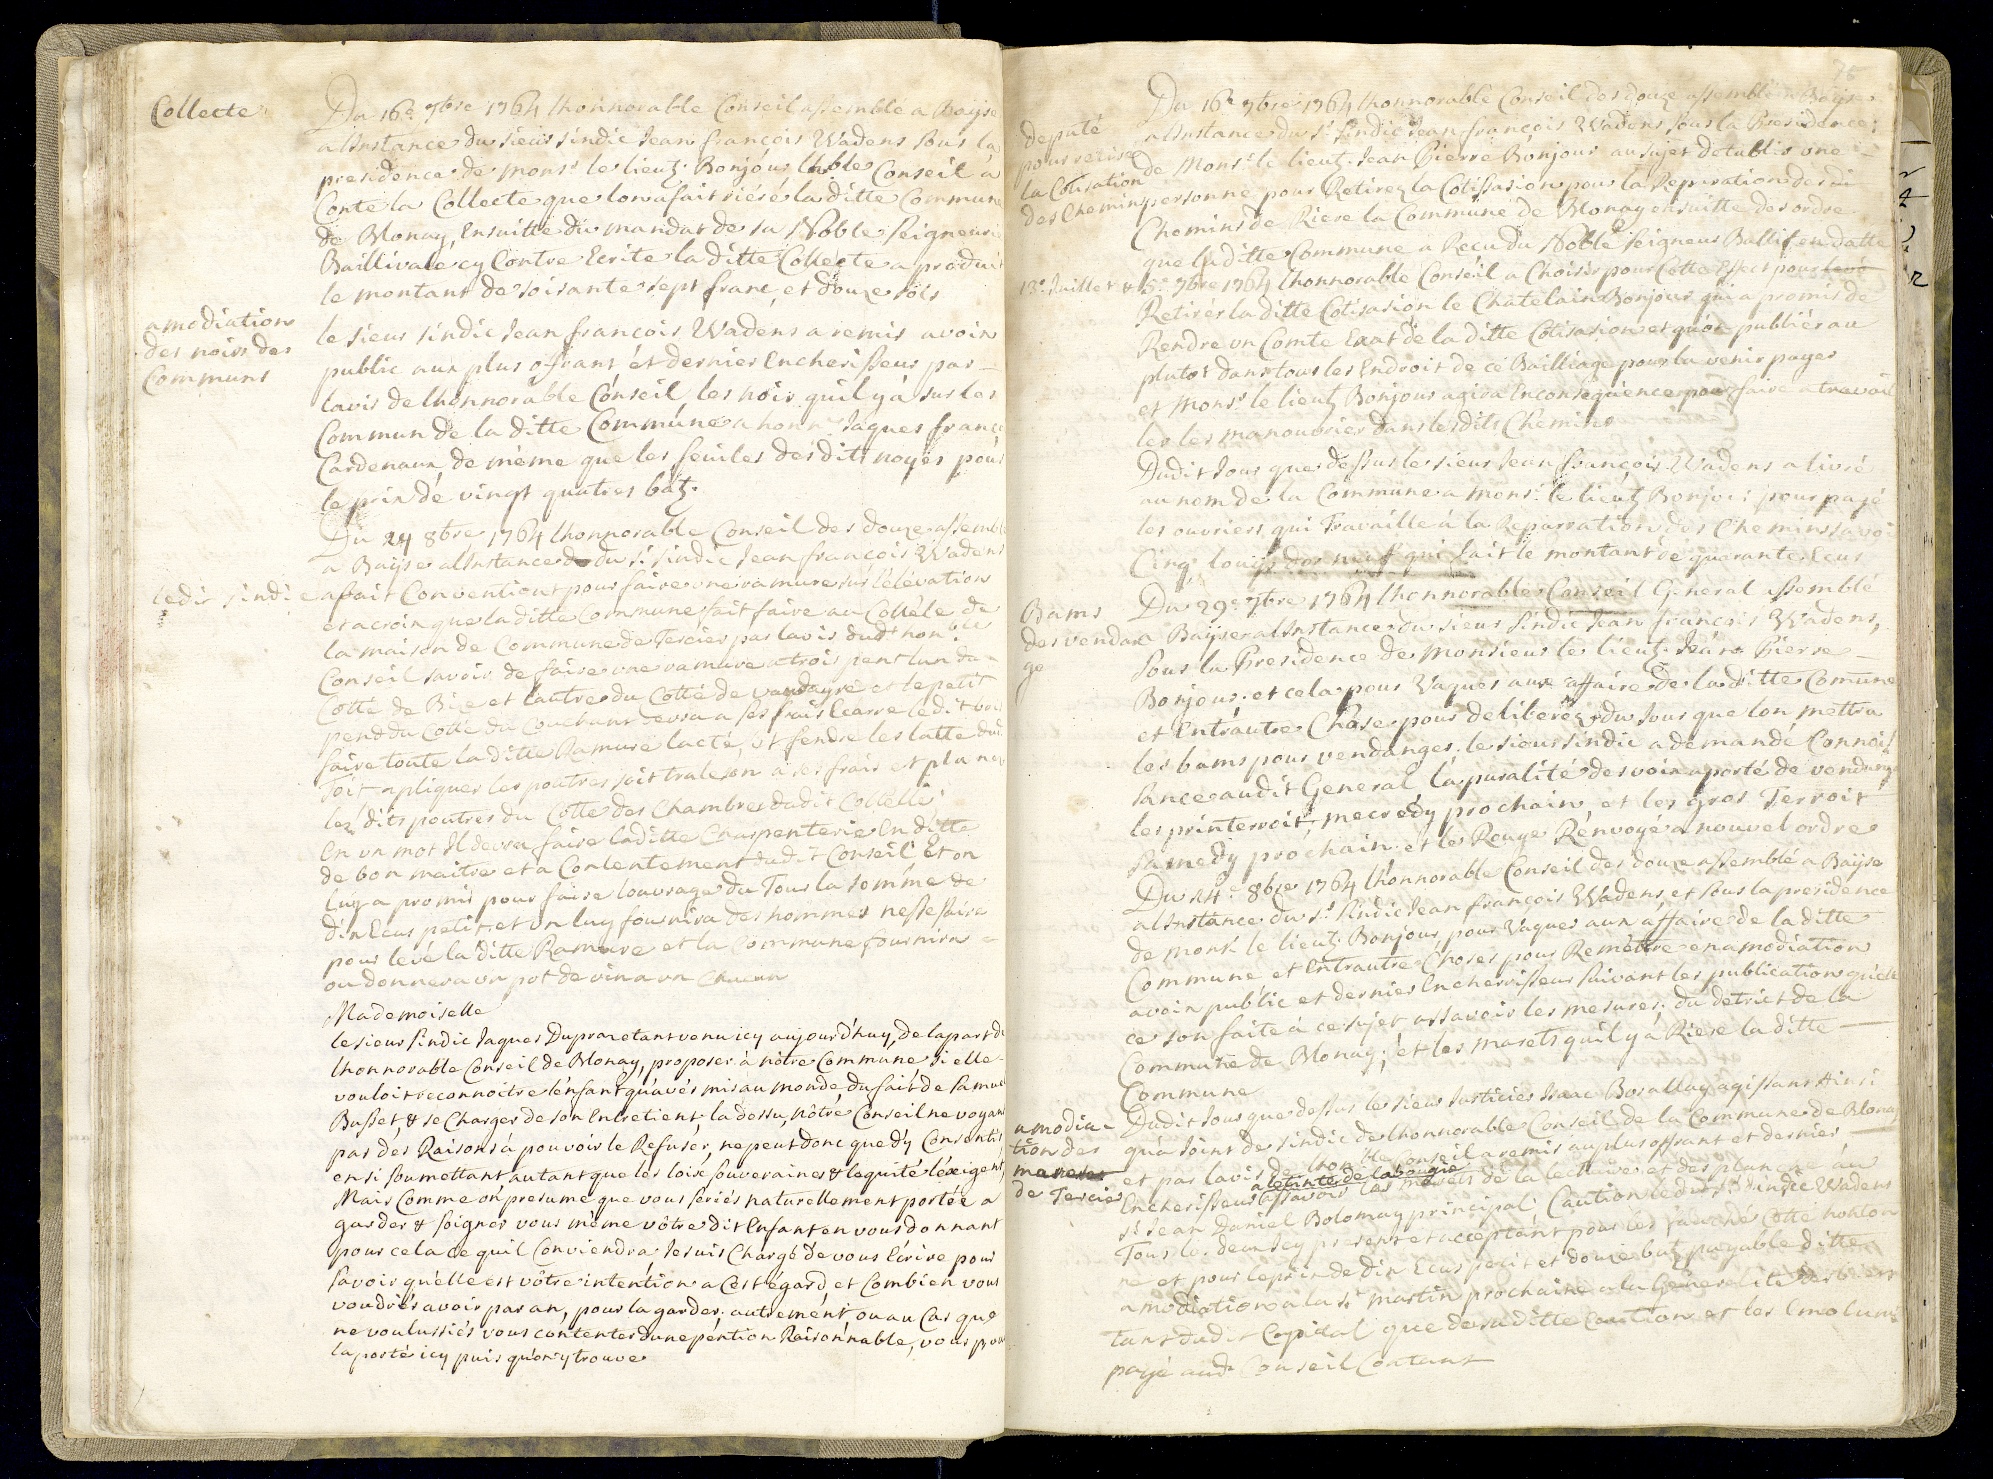 Collecte
Du 16e 7bre 1764 lhonnorable Conseil assemble a Bayse
a linstance du sieur sindic Jean françois Wadens sous la
presidence de Monsr le lieut: Bonjour lhble Conseil à
Conté la Collecte que lon a fait riéré la ditte Commune
de Blonay, Ensuitte du mandat de sa Noble Seigneurie
Baillivale cy Contre Ecrite la ditte Collecte a produit
le montant de soisante sept franc et douze sols
amodiation
des noix des
Communs
le sieur sindic Jean françois Wadens a remis a voix
public aux plus ofrant et dernier Encherisseur par
lavis de lhonnorable Conseil les noix quil y à sur les
Commun de la ditte Commune a honn: Jaques franç
Cardenaux de même que les feuiles desdits noyés pour
le prix de vingt quatres batz.
Du 24 8bre 1764 lhonnorable Conseil des douze assemble
a Bayse a linstance du sr sindic Jean françois Wadens
ledit sindic a fait Conventiont pour faire une ramure sur lélévation
et acroix que la ditte Commune fait faire au Colléle de
la maison de Commune de Tercier par lavis dudt honble
Conseil savoir de faire une ramure a trois pent lun du
Cotté de Bize et lautre du Cotté de vaudayre et le petit
pend du Cotté du Couchant devra a ses frais Ecarre ledit bois
faire toute la ditte Ramure lacté, et fendre les latte dud
Toit apliquer les poutres soit traleson a ses frais et planer
lesdits poutres du Cotté des Chambres dudit Collélle
En un mot Il devra faire la ditte Charpenterie En ditte
de bon maitre et a Contentement dudit Conseil Et on
luy a promis pour faire louvrage du Tout la somme de
dix Ecus petit, et on luy fournira des hommes nessessaire
pour levé la ditte Ramure et la Commune fournira
ou donnera un pot de vin a un Chacun
Mademoiselle
le sieur sindic Jaques Dupraz etant venu icy aujourdhuy, de la part de
lhonnorable Conseil de Blonay, proposer à nôtre Commune si elle
vouloit reconnoctre lénfant qu'avés mis au monde, du fait de Samuel
Busset, & se Charger de son Entretient, la dessu, nôtre Conseil ne voyant
pas des Raisons à pouvoir le Refuser, ne peut donc que dy Consentir,
en si soumettant autant que les loix souveraines & lequité léxigent,
Mais Comme on presume que vous seriés naturellement portée a
garder & soigner vous même vôtre dit Enfant en vous donnant
pour cela ce quil Conviendra Je suis Chargé de vous Ecrire pour
savoir qu'elle est vôtre intention a Cest égard, et Combien vous
voudriés avoir par an, pour la garder; autrement ou au Cas que
ne voulussiés vous contenter dune péntion Raisonnable, vous pou
la porté icy puis qu'on y trouve
Du 16e 7bre 1764 lhonnorable Conseil des douze assemblé a Bayse
deputé
pour retire
la Cotisation
des Chemin
a linstance du sr sindic Jean françois Wadens sous la Presidence
de Monsr le lieut: Jean Pierre Bonjour au sujet détablir une
personne pour Retirer la Cotissasion pour la Reparation des
Chemins de Riere la Commune de Blonay ensuitte des ordre
que la ditte Commune a Recu du Noble Seigneur Ballif en datte
13e Juillet & 5e 7bre 1764 lhonnorable Conseil a Choisir pour Cette Effect pour levé
Retirér la ditte Cotisasion le Chatelain Bonjour qui a promis de
Rendre un Comte Exat de la ditte Cotisasion et quon publiér au
plutot dans tous les Endroit de ce Bailliage pour la venir payer
et Monsr le lieut: Bonjour agira Enconséquence pour faire a travail
ler les manouvrier dans lesdits Chemins
Dudit Jour que dessus le sieur Jean françois Wadens a livré
au nom de la Commune a Monsr le lieut Bonjour pour payé
les ouvriers qui Travaille à la Reparration des Chemins savoir
Cinq louis dor neuf qui fait le montant de quarante Ecus
Bams
des vendan
ge
Du 29e 7bre 1764 lhonnorable Conseil General assemblé
a Bayse a linstance du sieur sindic Jean françois Wadens,
sous la Presidence de Monsieur le lieut: Jéan Pierre
Bonjour, et cela pour Vaquer aux affaire de la ditte Comune
et Entrautre Chose pour deliberér du Jour que lon mettra
les bams pour vendanges. le sieur sindic a demandé Connois
sance audit General la puralité des voix a porté de vendange
les printerroit, mecredy prochain et les gros Terroit
samedy prochain et les Rouge Rénvoyé a nouvel ordre
Du 24e 8bre 1764 lhonnorable Conseil des douze assemblé a Bayse
a linstance du sr sindic Jean françois Wadens, et sous la presidence
de Monsr le lieut: Bonjour pour Vaquer aux affaire de la ditte
Commune et Entrautre Choses pour Remettre en amodiation
a voix public et dernier Encherisseur suivant les publication quele
ce son faite à ce sujet, assavoir les mesures; du detrict de la
Commune de Blonay; et les marets quil y à Riere la ditte
Commune
amodia-
tion des
mareses
de Tercier
Dudit Jour que dessus le sieur Justicier Isaac Borallay agissant Ainsi
qu'a Joint de sindic de lhonnorable Conseil de la Commune de Blonay
et par lavis de lhonble Conseil a remis au plus offrant et dernier
a léteinte de la bougie
Encherisseur assavoir les marets de la lechere et des planche au
sr Jean Daniel Bolomay principal Caution ledit sr sindic Wadens
Tous les deux Icy present et acceptant pour les
ne et pour le prix de dix Ecus petit et douze batz payable ditte
amodiation a la st Martin prochaine a la Généralité des biens
tant dudit Capital que de sa ditte Caution et les Emolumt
payé audt Conseil Contant